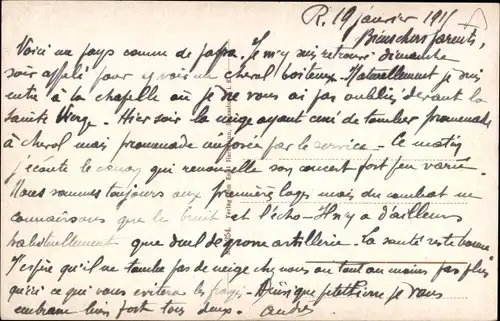 R. 19 janvier 191
Biens chers parents,
Voici un pays connu de papa. Je m'y suis retrouvé dimanche
soir appelé pour y voir un cheval boiteux. Naturellement je suis
entré à la chapelle où je ne vous ai pas oubliés devant la
sainte Vierge. Hier soir la neige ayant cessé de tomber promenade
à cheval mais promenade imposée par le service - Ce matin
j'écoute le canon qui renouvelle son concert fort peu varié.
Nous sommes toujours aux premières loges mais du combat ne
connaissons que le bruit et l'écho - Il n'y a d'ailleurs
habituellement que duel de grosse artillerie - La santé reste bonne
J'espère qu'il ne tombe pas de neige chez vous ou tout au moins pas plus
qu'ici ce qui vous évitera les - Ainsi que petit Pierre je vous
embrasse bien fort tous deux. André
Verlag von